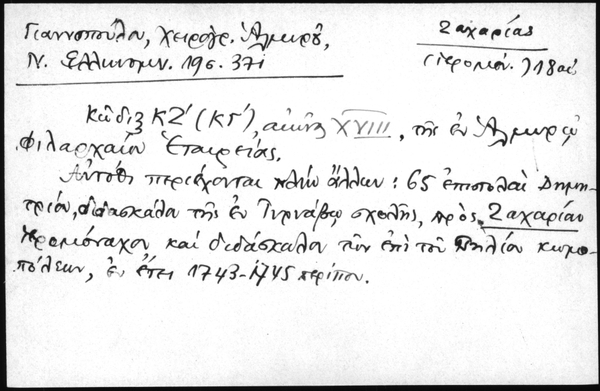 Γιαννοπούλου, Χειρόγρ. Ἁλμυροῦ,
Ν. Ἑλληνομν. 19 σ. 371
Ζαχαρίας
(ἱερομόν.) 18 αἰ
Κῶδιξ ΚΖ' (ΚΓ'), αἰῶνος XVIII, τῆς ἐν Ἁλμυρῷ
Φιλαρχαίου Ἑταιρείας.
Αὐτόθι περιέχονται πλὴν ἄλλων: 65 ἐπιστολαὶ Δημη-
τρίου, διδασκάλου τῆς ἐν Τυρνάβῳ σχολῆς, πρὸς Ζαχαρίαν
ἱερομόναχον καὶ διδάσκαλον τῶν ἐπὶ τοῦ Πηλίου κωμο-
πόλεων, ἐν ἔτει 1743-1745 περίπου.